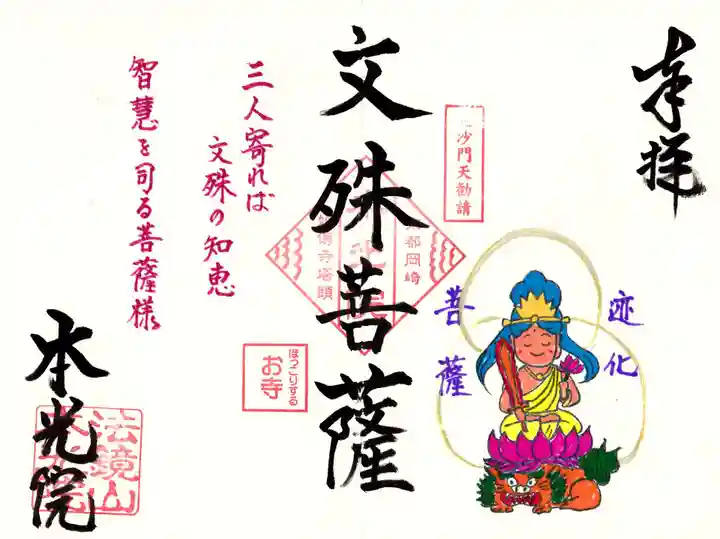 奉拝
迹化
菩薩
毘沙門天勧請
文殊菩薩
京都岡崎
三人寄れば
文殊の知恵
智慧を司る菩薩様
ほっこりする
お寺
本光院
法鏡山